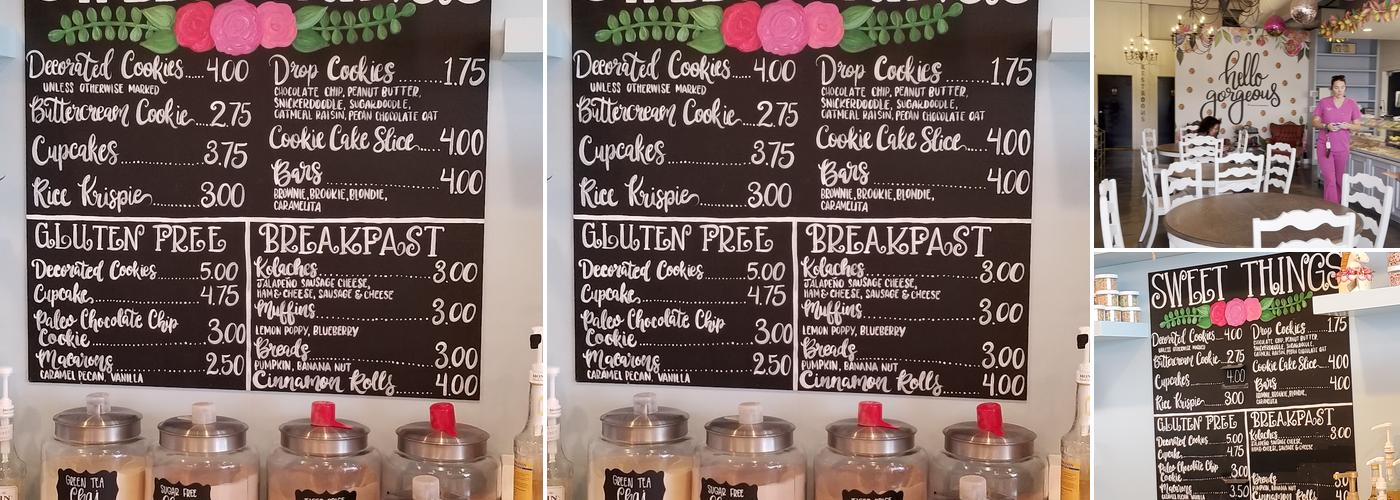 Decorated Cookies.....4.00
UNLESS OTHERWISE MARKED
Buttercream Cookie...2.75
Cupcakes............3.75
Rice Krispie.........3.00
Drop Cookies............1.75
CHOCOLATE CHIP, PEANUT BUTTER,
SNICKERDOODLE, SUGARDOODLE,
OATMEAL RAISIN, PECAN CHOCOLATE OAT
Cookie Cake Slice....4.00
Bars....................4.00
BROWNIE, BROOKIE, BLONDIE,
CARAMELITA
GLUTEN FREE
Decorated Cookies........5.00
Cupcake...................4.75
Paleo Chocolate Chip
Cookie....................3.00
Macarons................2.50
CARAMEL PECAN, VANILLA
BREAKFAST
Kolaches....................3.00
JALAPEÑO SAUSAGE CHEESE,
HAM & CHEESE, SAUSAGE & CHEESE
Muffins.....................3.00
LEMON POPPY, BLUEBERRY
Breads......................3.00
PUMPKIN, BANANA NUT
Cinnamon Rolls.........4.00
GREEN TEA
Chai
SUGAR FREE
Decorated Cookies.....4.00
UNLESS OTHERWISE MARKED
Buttercream Cookie...2.75
Cupcakes............3.75
Rice Krispie.........3.00
Drop Cookies............1.75
CHOCOLATE CHIP, PEANUT BUTTER,
SNICKERDOODLE, SUGARDOODLE,
OATMEAL RAISIN, PECAN CHOCOLATE OAT
Cookie Cake Slice....4.00
Bars....................4.00
BROWNIE, BROOKIE, BLONDIE,
CARAMELITA
GLUTEN FREE
Decorated Cookies........5.00
Cupcake...................4.75
Paleo Chocolate Chip
Cookie....................3.00
Macarons................2.50
CARAMEL PECAN, VANILLA
BREAKFAST
Kolaches....................3.00
JALAPEÑO SAUSAGE CHEESE,
HAM & CHEESE, SAUSAGE & CHEESE
Muffins.....................3.00
LEMON POPPY, BLUEBERRY
Breads......................3.00
PUMPKIN, BANANA NUT
Cinnamon Rolls.........4.00
GREEN TEA
Chai
SUGAR FREE
RESTROOMS
hello
gorgeous
SWEET THINGS
Decorated Cookies....4.00
UNLESS OTHERWISE MARKED
Buttercream Cookie...2.75
Cupcakes..........4.00
Rice Krispie.......3.00
Drop Cookies..........1.75
CHOCOLATE CHIP, PEANUT BUTTER,
SNICKERDOODLE, SUGARDOODLE,
OATMEAL RAISIN, PECAN CHOCOLATE OAT
Cookie Cake Slice....4.00
Bars................4.00
BROWNIE, BROOKIE, BLONDIE,
CARAMELITA
GLUTEN FREE
Decorated Cookies......5.00
Cupcake..............4.75
Paleo Chocolate Chip
Cookie...............3.00
Macarons............3.50
CARAMEL PECAN, VANILLA
BREAKFAST
Kolaches.............3.00
JALAPEÑO SAUSAGE CHEESE,
HAM & CHEESE, SAUSAGE & CHEESE
Breads
Cinnamon Rolls